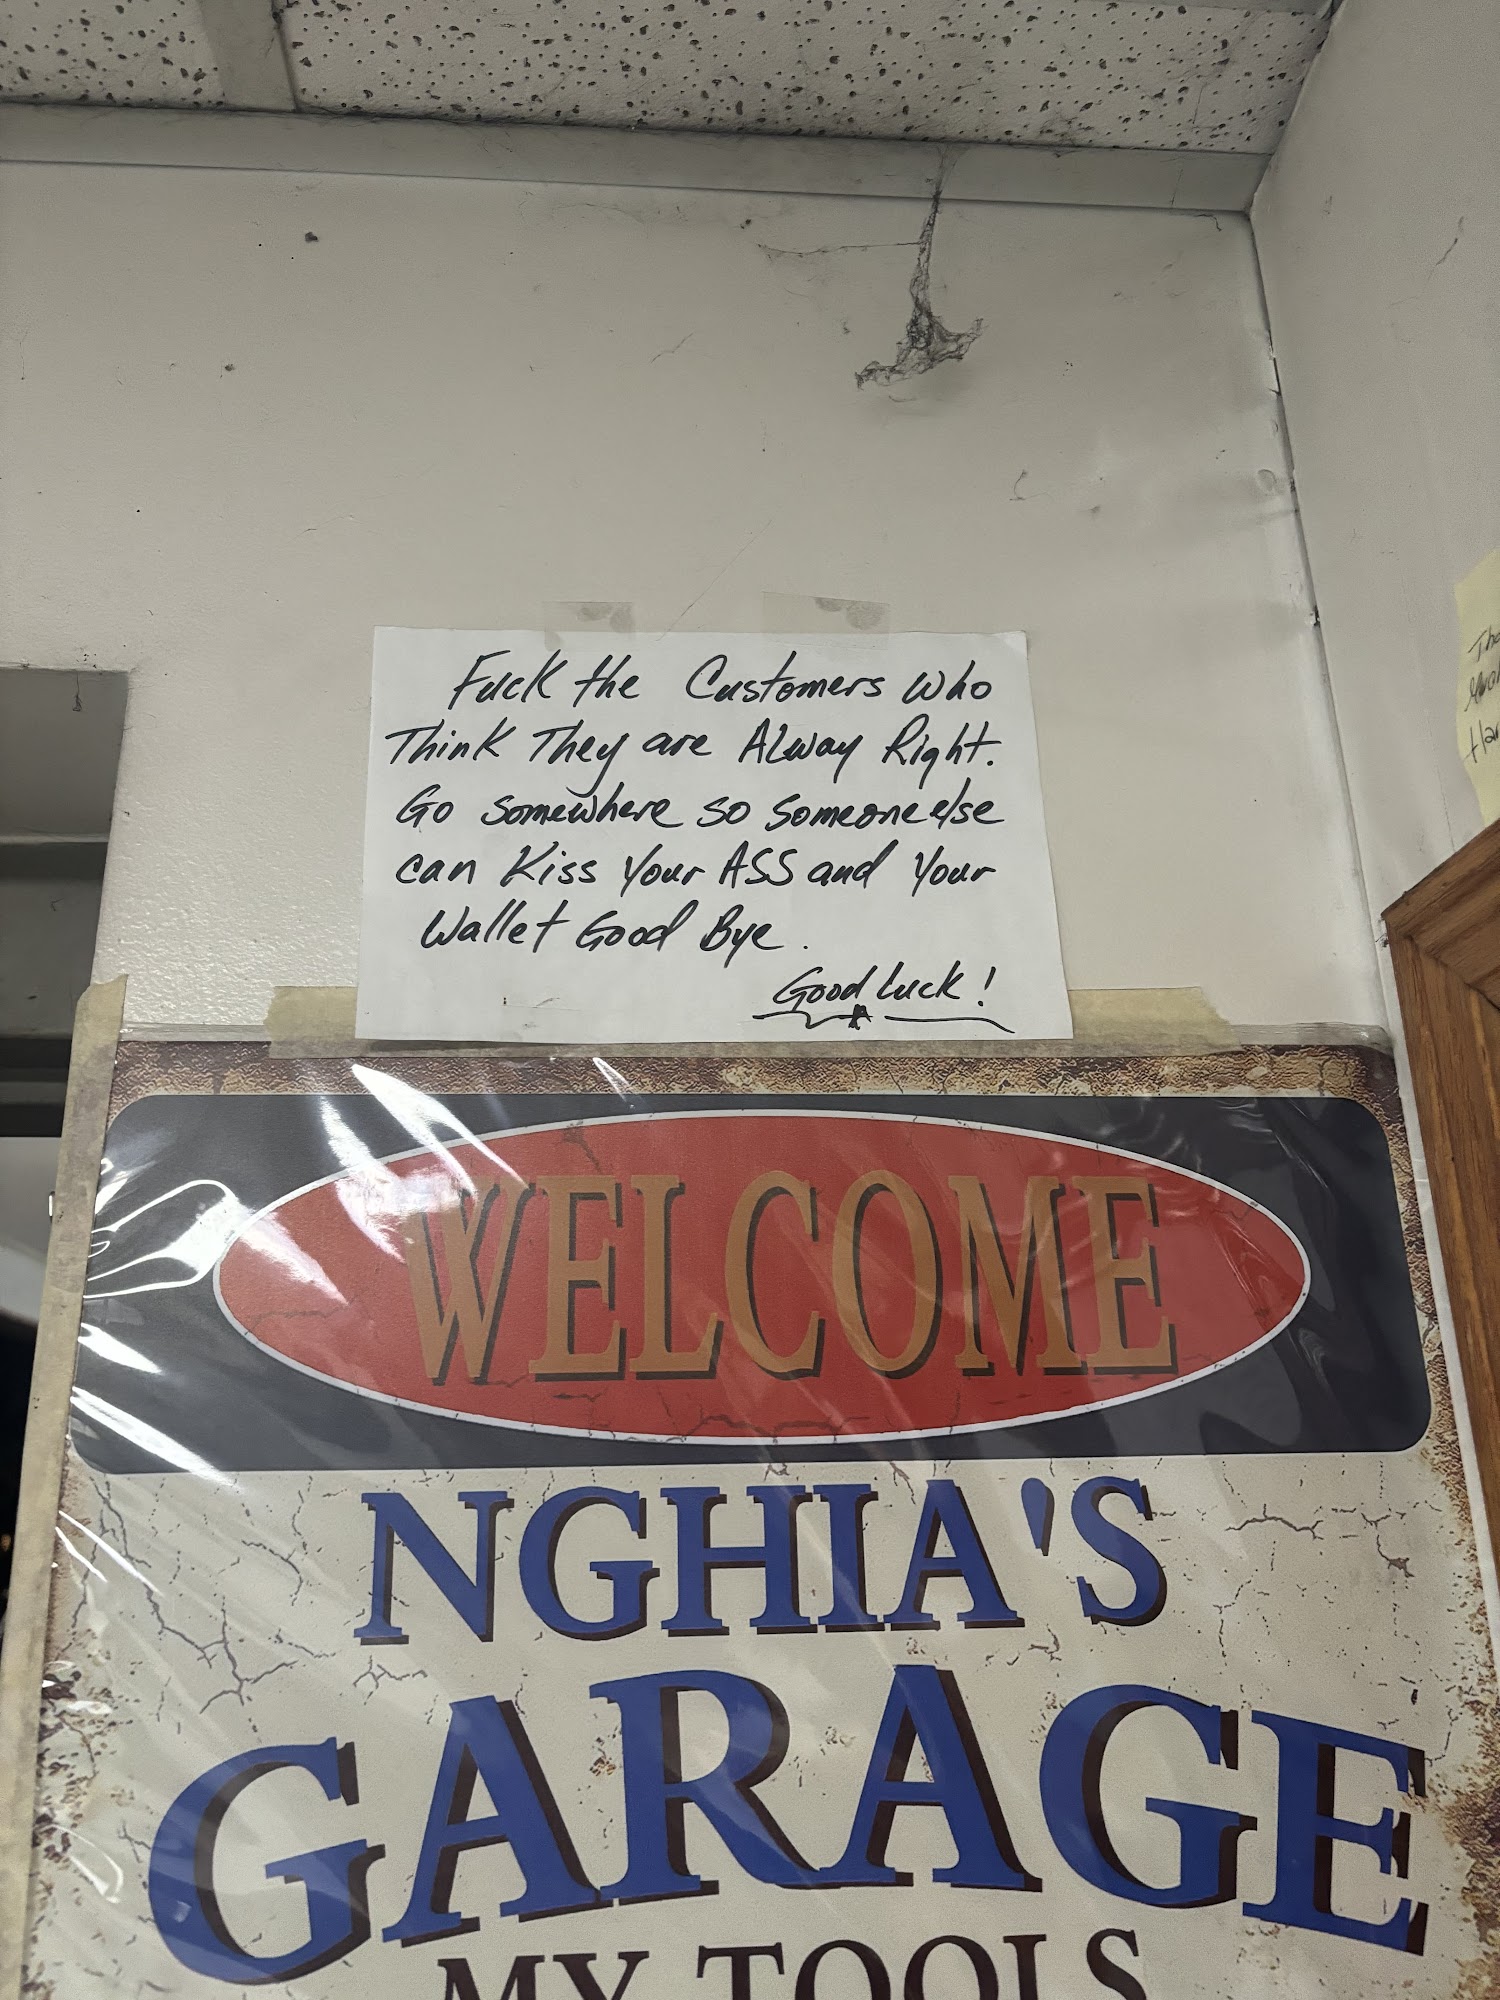 Fuck the Customers who
Think They are ALway Right.
Go somewhere so someone else
can Kiss Your ASS and Your
Wallet Good Bye.
Good Luck!
WELCOME
NGHIA'S
GARAGE
MY TOOLS